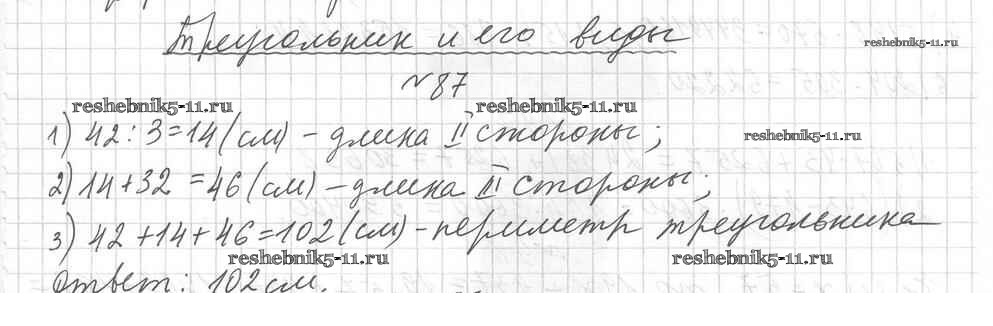 Треугольник и его виды
reshebnik5-11.ru
№87
reshebnik5-11.ru reshebnik5-11.ru
1) 42 : 3 = 14 (см) – длина II стороны;
reshebnik5-11.ru
2) 14 + 32 = 46 (см) – длина III стороны;
3) 42 + 14 + 46 = 102 (см) – периметр треугольника
reshebnik5-11.ru reshebnik5-11.ru
ответ: 102 см.